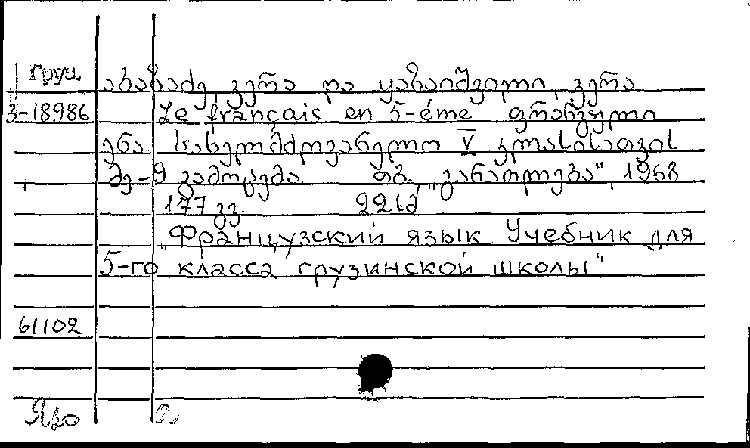 Груз.
აბაზაძე, ვერა და ყაზაიშვილი, ვერა
3-18986 Le français en 5-éme ფრანგული
ენა სახელმძღვანელო V კლასისათვის
მე-9 გამოცემა თბ. „განათლება", 1968
177 გვ 22 კ
„Французский язык Учебник для
5-го класса грузинской школы"
61102